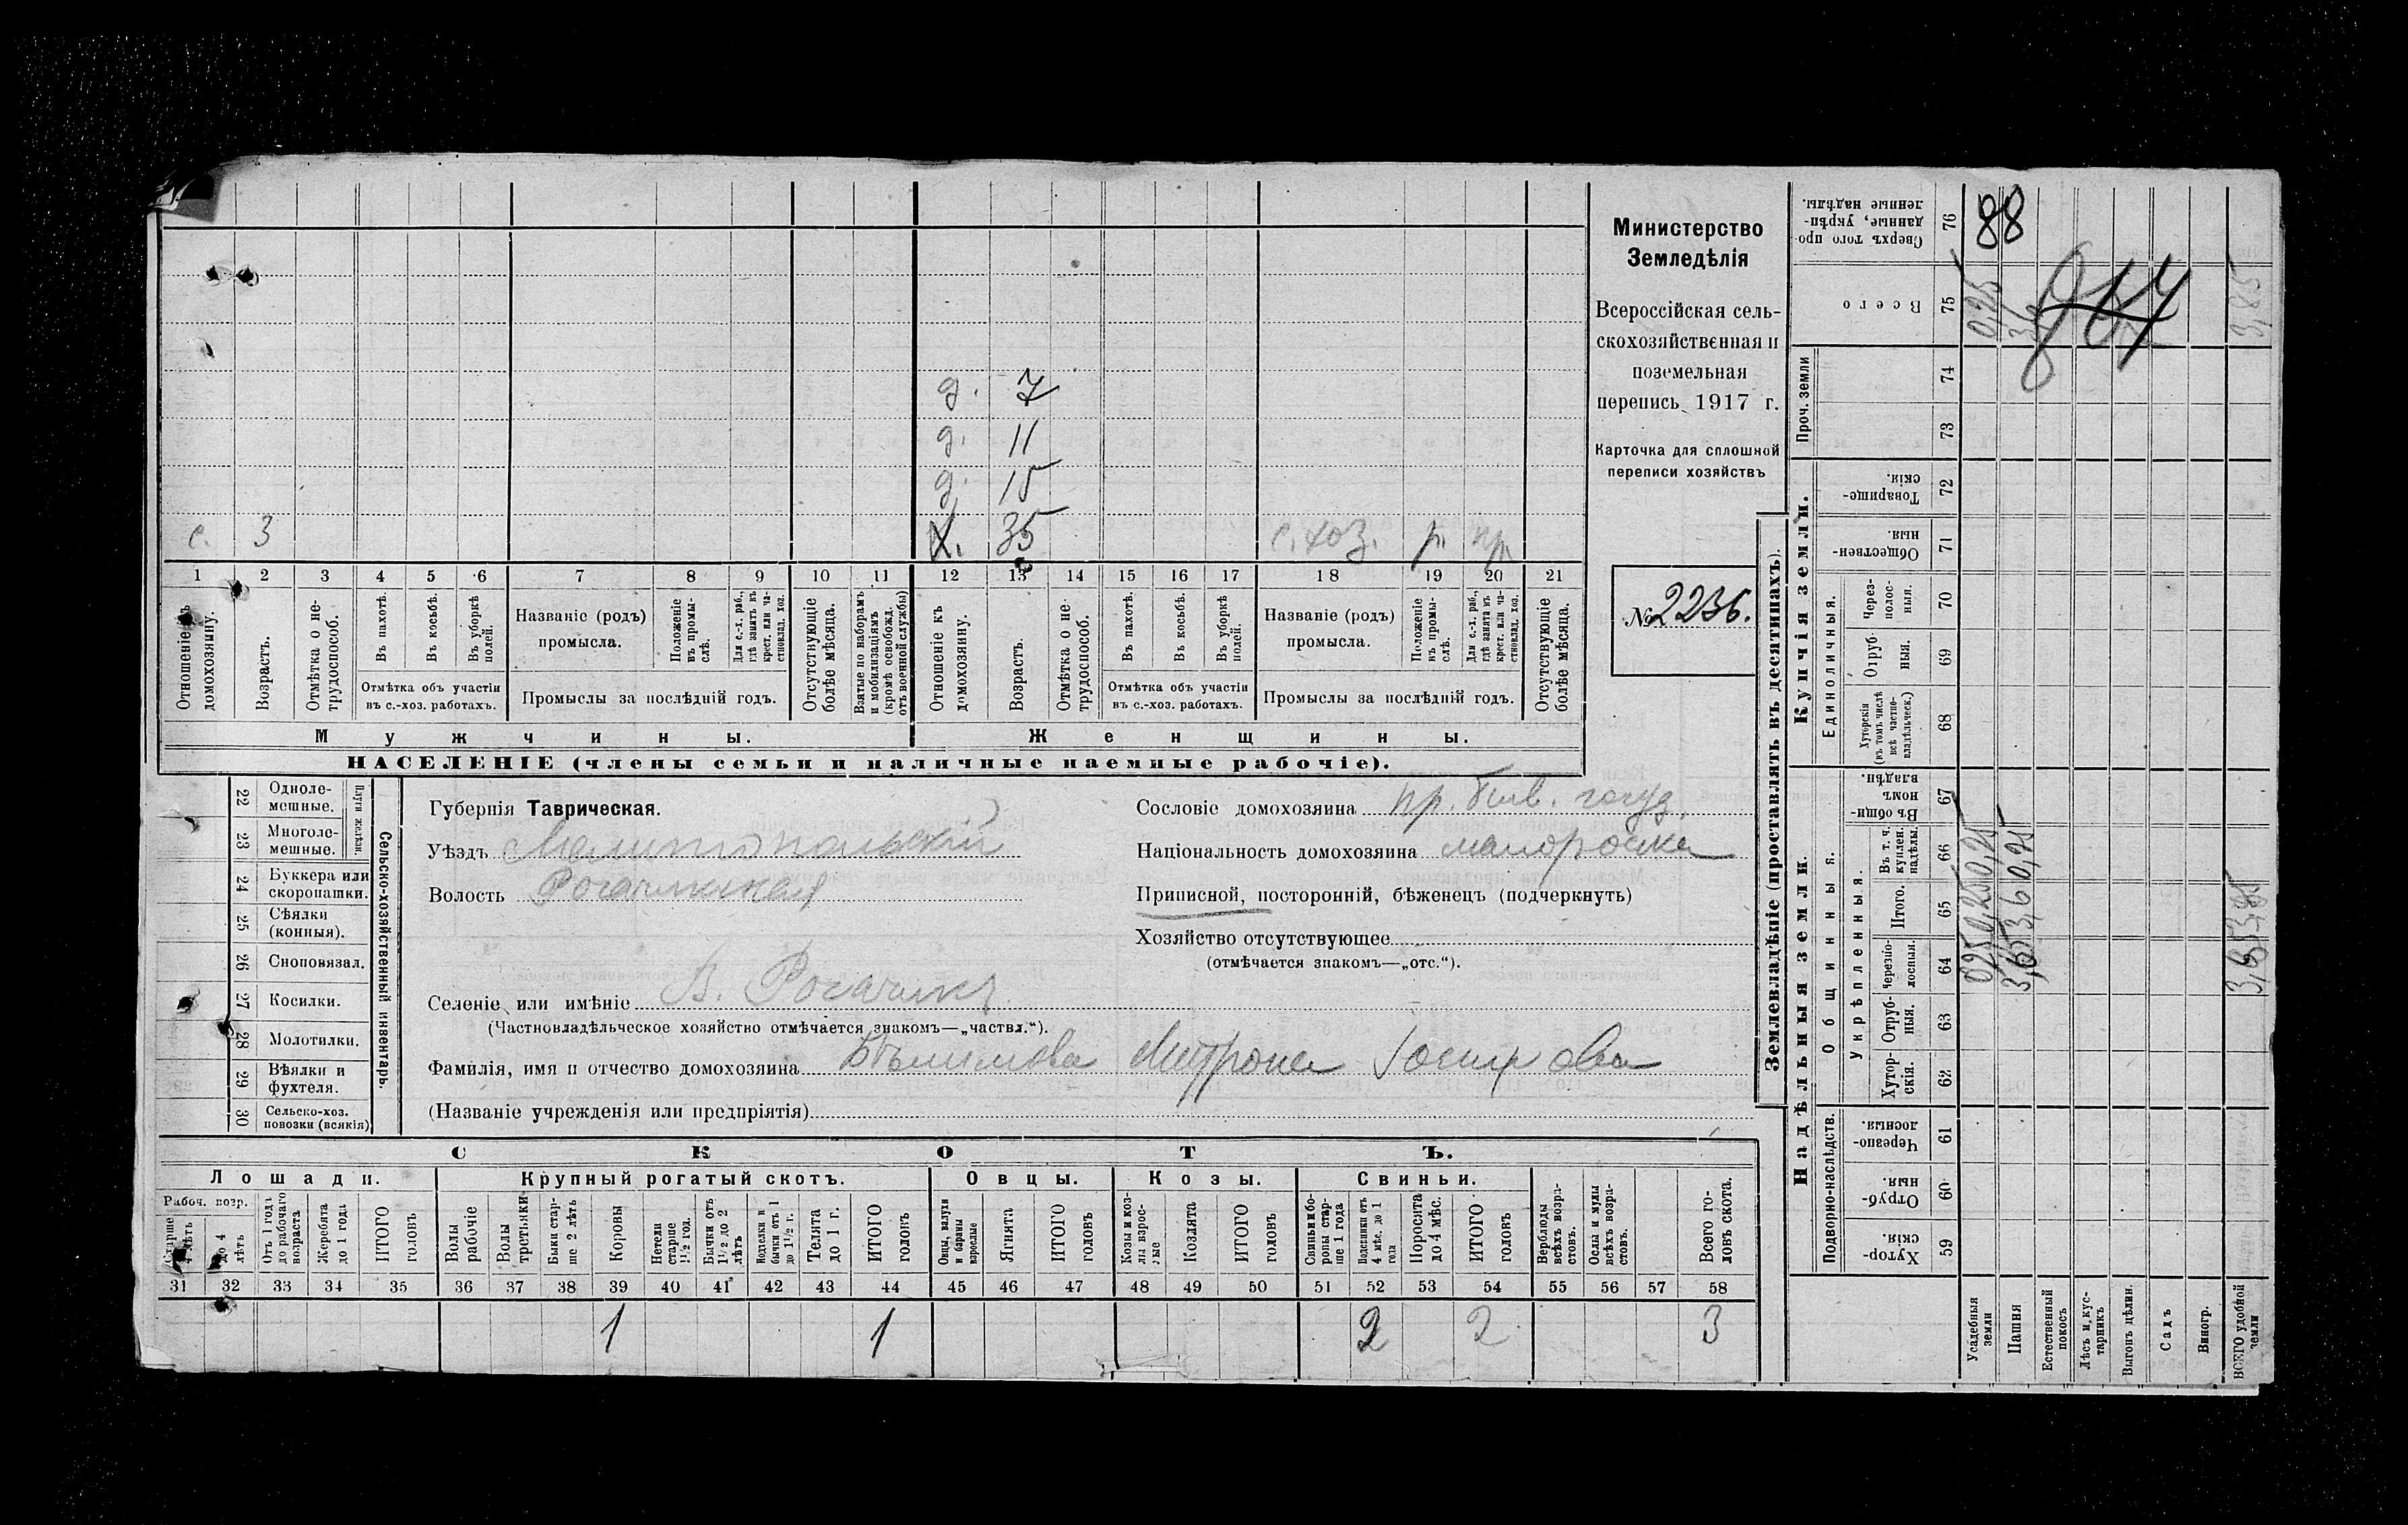 д. 7
д. 11
д. 15
с. 3 Х. 35 с. хоз. р. пр.
1 2 3 4 5 6 7 8 9 10 11 12 13 14 15 16 17 18 19 20 21
Отношеніе къ домохозяину.
Возрастъ.
Отмѣтка о нетрудоспособ.
Въ пахотѣ.
Въ косьбѣ.
Въ уборкѣ полей.
Отмѣтка объ участіи въ с.-хоз. работахъ.
Названіе (родъ) промысла.
Положеніе въ промыслѣ.
Для с.-х. раб., гдѣ занятъ въ крест. или частновлад. хоз.
Промыслы за послѣдній годъ.
Отсутствующіе болѣе мѣсяца.
Взятые по наборамъ и мобилизаціямъ (кромѣ освобожд. отъ военной службы)
Отношеніе къ домохозяину.
Возрастъ.
Отмѣтка о нетрудоспособ.
Въ пахотѣ.
Въ косьбѣ.
Въ уборкѣ полей.
Отмѣтка объ участіи въ с.-хоз. работахъ.
Названіе (родъ) промысла.
Положеніе въ промыслѣ.
Для с.-х. раб., гдѣ занята въ крест. или частновлад. хоз.
Промыслы за послѣдній годъ.
Отсутствующіе болѣе мѣсяца.
Мужчины. Женщины.
НАСЕЛЕНІЕ (члены семьи и наличные наемные рабочіе).
Министерство
Земледѣлія
Всероссійская сель-
скохозяйственная и
поземельная
перепись 1917 г.
Карточка для сплошной
переписи хозяйствъ
№ 2236.
Сельско-хозяйственный инвентарь.
Плуги желѣзн.
22 Однолемешные.
23 Многолемешные.
24 Буккера или скоропашки.
25 Сѣялки (конныя).
26 Сноповязал.
27 Косилки.
28 Молотилки.
29 Вѣялки и фухтеля.
30 Сельско-хоз. повозки (всякія)
Губернія Таврическая.
Уѣздъ Мелитопольскій
Волость Рогачикская
Селеніе или имѣніе В. Рогачикъ
(Частновладѣльческое хозяйство отмѣчается знакомъ—„частвл.“).
Фамилія, имя и отчество домохозяина Митрона
(Названіе учрежденія или предпріятія)
Сословіе домохозяина кр. быв. госуд.
Національность домохозяина малороска
Приписной, посторонній, бѣженец (подчеркнуть)
Хозяйство отсутствующее
(отмѣчается знакомъ—„отс.“).
СКОТЪ.
Лошади. Крупный рогатый скотъ. Овцы. Козы. Свиньи.
Рабоч. возр.
Старше 4 лѣтъ
до 4 лѣтъ
Отъ 1 года до рабочаго возраста
Жеребята до 1 года
ИТОГО головъ
Волы рабочіе
Волы третьяки
Быки старше 2 лѣтъ
Коровы
Нетели старше 1½ год.
Бычки отъ 1½ до 2 лѣтъ
Подтелки и бычки отъ 1 до 1½ г.
Телята до 1 г.
ИТОГО головъ
Овцы, валухи и бараны взрослые
Ягнята
ИТОГО головъ
Козы и козлы взрослые
Козлята
ИТОГО головъ
Свиньи и боровы старше 1 года
Подсвинки отъ 4 мѣс. до 1 года
Поросята до 4 мѣс.
ИТОГО головъ
Верблюды всѣхъ возрастовъ.
Ослы и мулы всѣхъ возрастовъ.
Всего головъ скота.
31 32 33 34 35 36 37 38 39 40 41 42 43 44 45 46 47 48 49 50 51 52 53 54 55 56 57 58
1 1 2 2 3
Землевладѣніе (проставлять въ десятинахъ).
Надѣльныя земли. Купчія земли. Проч. земли
Подворно-наслѣдств. Общинныя. Единоличныя.
Укрѣпленныя.
Хуторскія. 59
Отрубныя. 60
Черезполосныя. 61
Хуторскія. 62
Отрубныя. 63
Черезполосныя. 64
Итого. 65
Въ т. ч. куплен. надѣлы. 66
Въ общинномъ владѣн. 67
Хуторскія (въ томъ числѣ всѣ частновладѣльческ.) 68
Отрубныя. 69
Черезполосныя. 70
Общественныя. 71
Товарищескія. 72
73
74
Всего 75
Сверхъ того проданные, укрѣпленные надѣлы. 76
Усадебныя земли 0,25 0,25 0,25 0,25
Пашня 3,6 3,6
Естественный покосъ
Лѣсъ и кустарникъ
Выгонъ цѣлин.
Садъ
Виногр.
ВСЕГО удобной земли 3,85 3,85 3,85
88